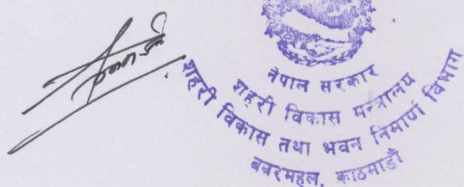 नेपाल सरकार
शहरी विकास मन्त्रालय
शहरी विकास तथा भवन निर्माण विभाग
बबरमहल, काठमाडौं